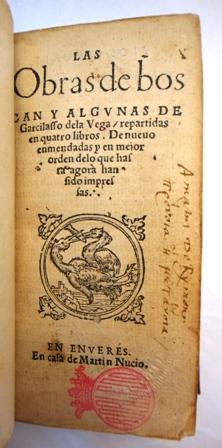 LAS
Obras de bos
CAN Y ALGVNAS DE
Garcilasso dela Vega / repartidas
en quatro libros. De nueuo
enmendadas y en meior
orden delo que has
ta agora han
sido impres
sas.
EN ENVERES.
En casa de Martin Nucio.